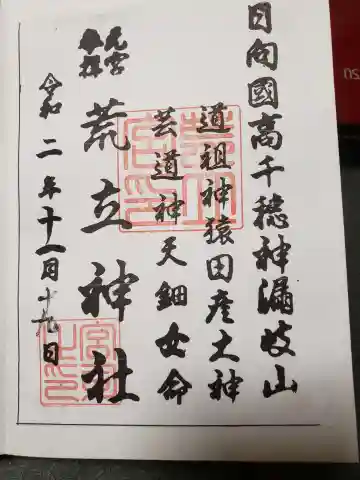 日向國高千穂神漏岐山
道祖神猿田彦大神
芸道神天鈿女命
元宮
奉拝
荒立神社
令和二年十一月十九日